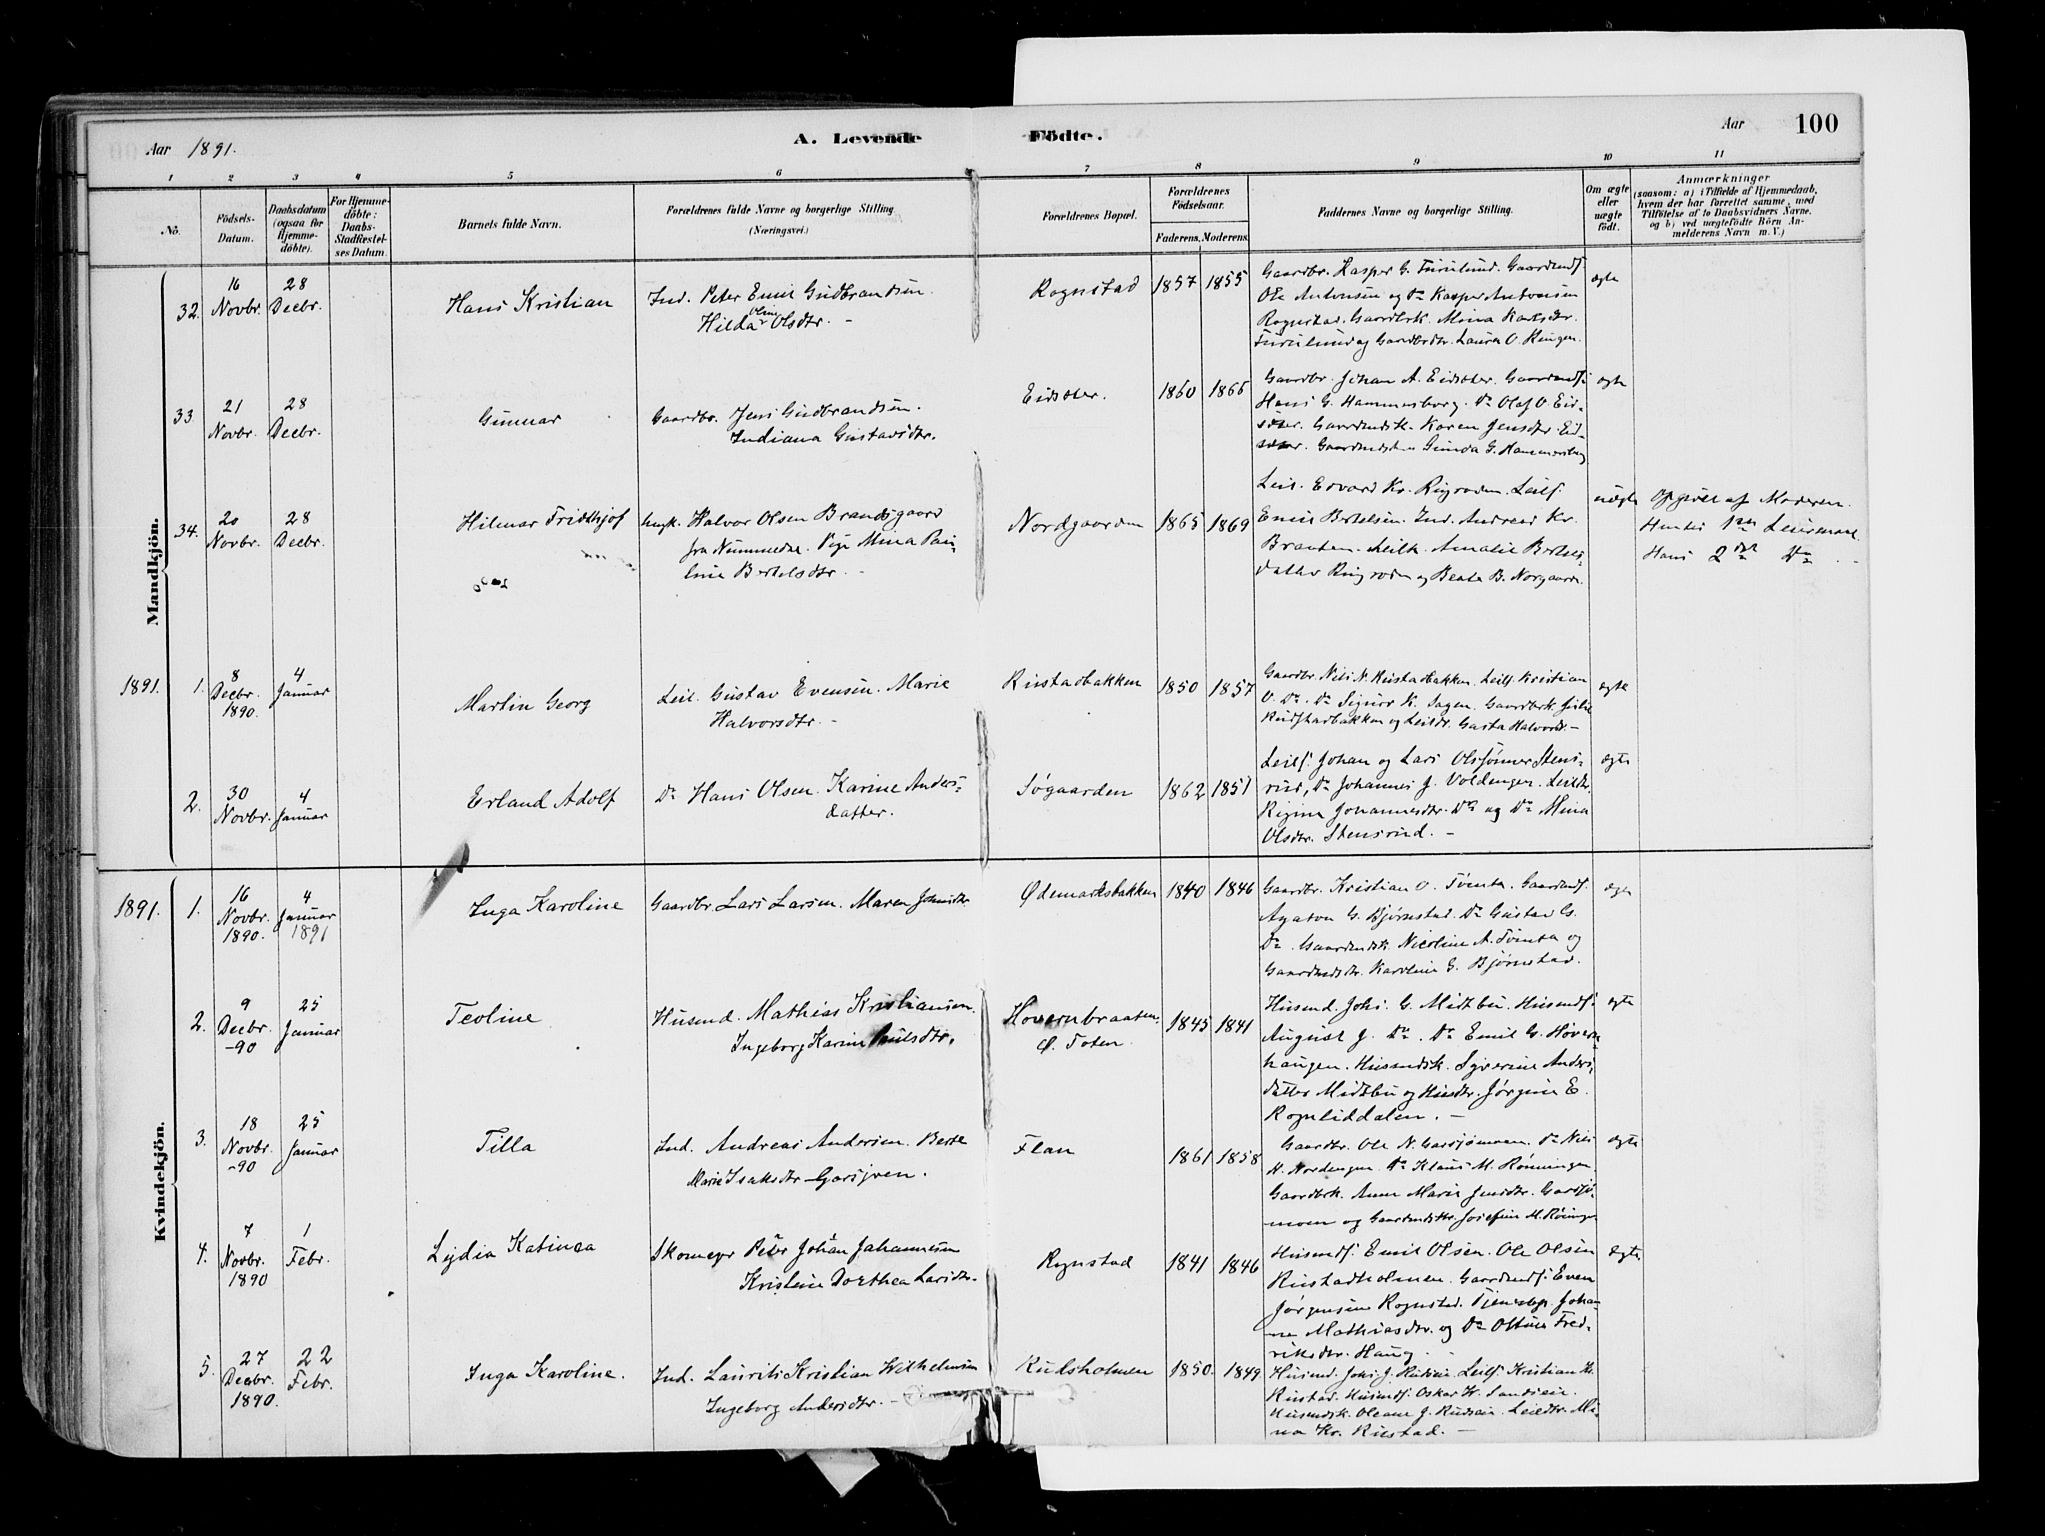 Aar 1891.
A. Levende Födte.
Aar 100
1 2 3 4 5 6 7 8 9 10 11
No.
Födsels-Datum.
Daabsdatum (ogsaa for Hjemmedöbte).
For Hjemmedöbte: Daabs-Stadfæstelses Datum.
Barnets fulde Navn.
Forældrenes fulde Navne og borgerlige Stilling
(Næringsvei.)
Forældrenes Bopæl.
Forældrenes Födselsaar.
Faderens. Moderens.
Faddernes Navne og borgerlige Stilling.
Om ægte eller uægte födt.
Anmærkninger
(saasom: a) i Tilfælde af Hjemmedaab,
hvem der har forrettet samme, med
Tilföielse af to Daabsvidners Navne,
og b) ved uægtefödte Börn Anmelderens Navn m. V.)
Mandkjön.
32. 16 Novbr. 28 Decbr. Hans Kristian
Ind. Peter Emil Gudbrandsen.
Hilda Oline Olsdtr. -
Rognstad 1857 1855
Gaardbr. Kasper G. Furulund. Gaardmds.
Ole Antonsen og Do Kasper Antonsen
Rognstad. Gaardbrk. Mina Karlsdtr.
Furulund og Gaardbrdtr. Laura O. Ringen.
ægte
33. 21 Novbr. 28 Decbr. Gunnar
Gaardbr. Jens Gudbrandsen.
Indiana Gustavsdtr.
Eidsæter. 1860 1866
Gaardbr. Johan A. Eidsæter. Gaardmds.
Hans G. Hammersborg. Do Olaf O. Eid-
sæter. Gaardmdsk. Karen Jensdtr. Eid-
sæter. Gunda G. Hammersborg
ægte
34. 20 Novbr. 28 Decbr. Hilmar Fridthjof
Halvor Olsen Brandsgaard
fra Nummedal. Pige Mina Pau-
line Bertelsdtr. -
Nordgaarden 1865 1869
Leil. Edvard Kr. Ringroden. Leils.
Emil Bertelsen. Ind. Andreas Kr.
Braaten. Leilk. Amalie Bertels-
datter Ringroden og Beata B. Norgaarden
uægte
Opgivet af Moderen.
Hendes 1ste Leiermaal.
Hans 2det Do
1891. 1. 8 Decbr. 1890. 4 Januar Martin Georg
Leil. Gustav Evensen. Marie
Halvorsdtr. -
Rustadbakken 1850 1857
Gaardbr. Nils N. Rustadbakken. Leils. Kristian
O. Do. Do Sigurd K. Sagen. Gaardbrk. Julie
Rudstadbakken og Leildr. Gusta Halvorsd. -
ægte
2. 30 Novbr. 4 Januar Erland Adolf
Do Hans Olsen. Karine Anders-
datter.
Søgaarden 1862 1851
Leils. Johan og Lars Olssønner Stens-
rud, Do Johannes J. Voldengen. Leildtr.
Regine Johannesdtr. Do og Do Mina
Olsdtr. Stensrud. -
ægte
Kvindekjön.
1891. 1. 16 Novbr. 1890. 4 Januar 1891 Inga Karoline
Gaardbr. Lars Larsen. Maren Johnsdtr
Ødemarksbakken 1840 1846
Gaardbr. Kristian O. Tømta. Gaardmds.
Agaton G. Bjørnstad. Do Gustav G.
Do. Gaardmdsk. Nicoline A. Tømta og
Gaardmdsdtr. Karoline G. Bjørnstad.
ægte
2. 9 Decbr. -90 25 Januar Teoline
Husmd. Mathias Kristiansen.
Ingeborg Karine Paulsdtr.
Hovernbraaten. Ø. Toten. 1845 1841
Husmd. Johs. G. Midtbu. Husmds.
August J. Do. Do Emil G. Høvern-
haugen. Husmdsk. Syverine Anders-
datter Midtbu og Husdtr. Jørgine E.
Rognliddalen. -
ægte
3. 18 Novbr. -90 25 Januar Tilla
Ind. Andreas Andersen. Berte
Marie Isaksdtr
Flan 1861 1858
Gaardbr. Ole N. Garsjømoen. Do Nils
N. Nordengen. Do Klaus M. Rønningen.
Gaardbrk. Anne Marie Jensdtr. Garsjø-
moen og Gaardmdsdtr. Josefine M. Røningen
ægte
4. 7 Novbr. 1890 1 Febr. Lydia Katinca
Skomager Peter Johan Johannesen
Kristine Dorthea Larsdtr.
Rognstad 1841 1846
Husmds. Emil Olsen. Ole Olsen
Rustadholmen. Gaardmds. Even
Jørgensen Rognstad. Tjenestep. Johan-
ne Mathiasdtr. og Do Oltine Fred-
riksdtr. Haug.
ægte
5. 27 Decbr. 1890. 22 Febr. Inga Karoline.
Ind. Laurits Kristian Wilhelmsen
Ingeborg Andersdtr. -
Rudsholmen 1850. 1849.
Husmd. Johs. J. Rudseie. Leils. Kristian Kr.
Rustad. Husmds. Oskar W. Sandseie.
Husmdsk. Oleane J. Rudseie. Leildtr. Mi-
na Kr. Rustad. -